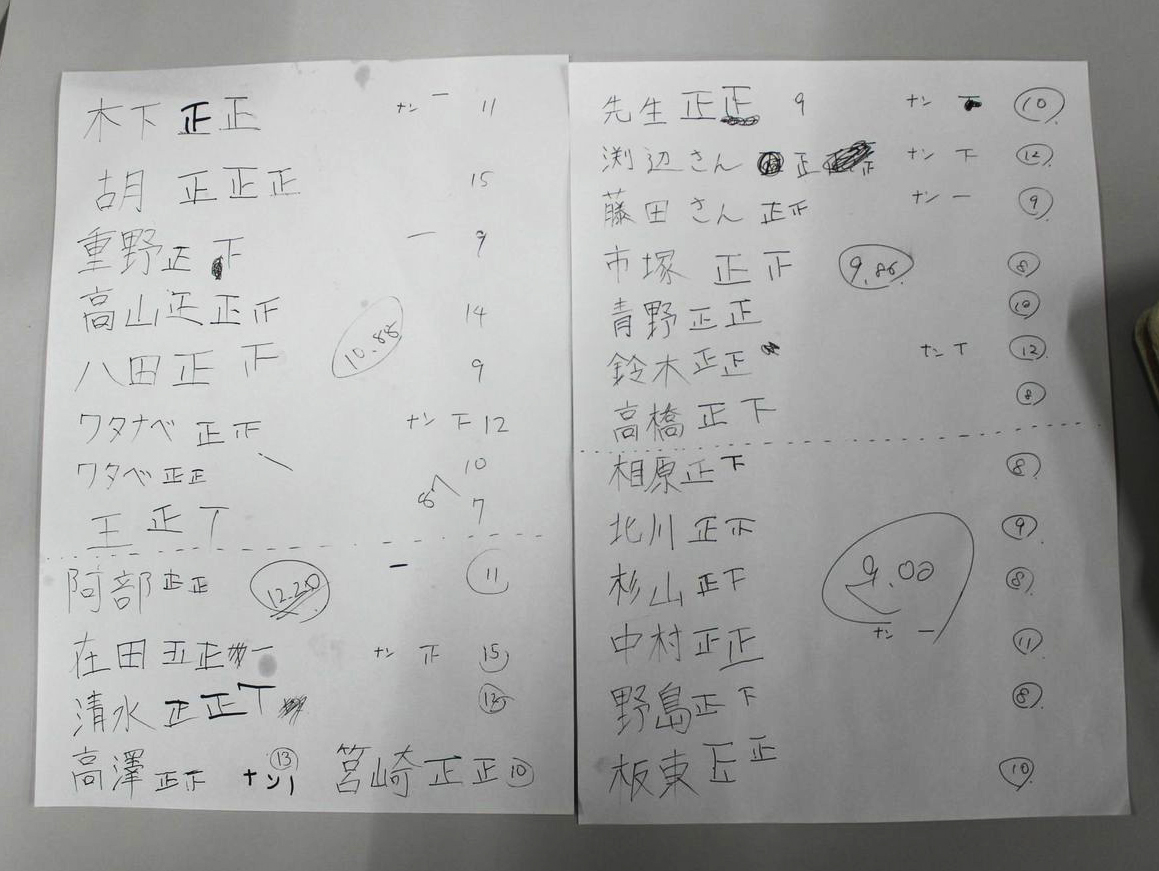 木下 正正 ナン 一 11
胡 正正正 15
重野 正下 一 9
高山 正正正 14
10.88
八田 正正 9
ワタナベ 正正 ナン 下 12
ワタベ 正正 10
8
王 正丅 7
阿部 正正 一 11
12.20
在田 五正一 ナン 下 15
清水 正正丅 12
高澤 正下 ナン 13
筥崎 正正 10
先生 正正 9 ナン 10
渕辺さん 正 ナン 下 12
藤田さん 正正 ナン 一 9
市塚 正下 8
9.86
青野 正正 10
鈴木 正正 ナン 丅 12
高橋 正下 8
相原 正下 8
北川 正正 9
9.00
杉山 正下 8
中村 正正 ナン 一 11
野島 正下 8
板東 正正 10